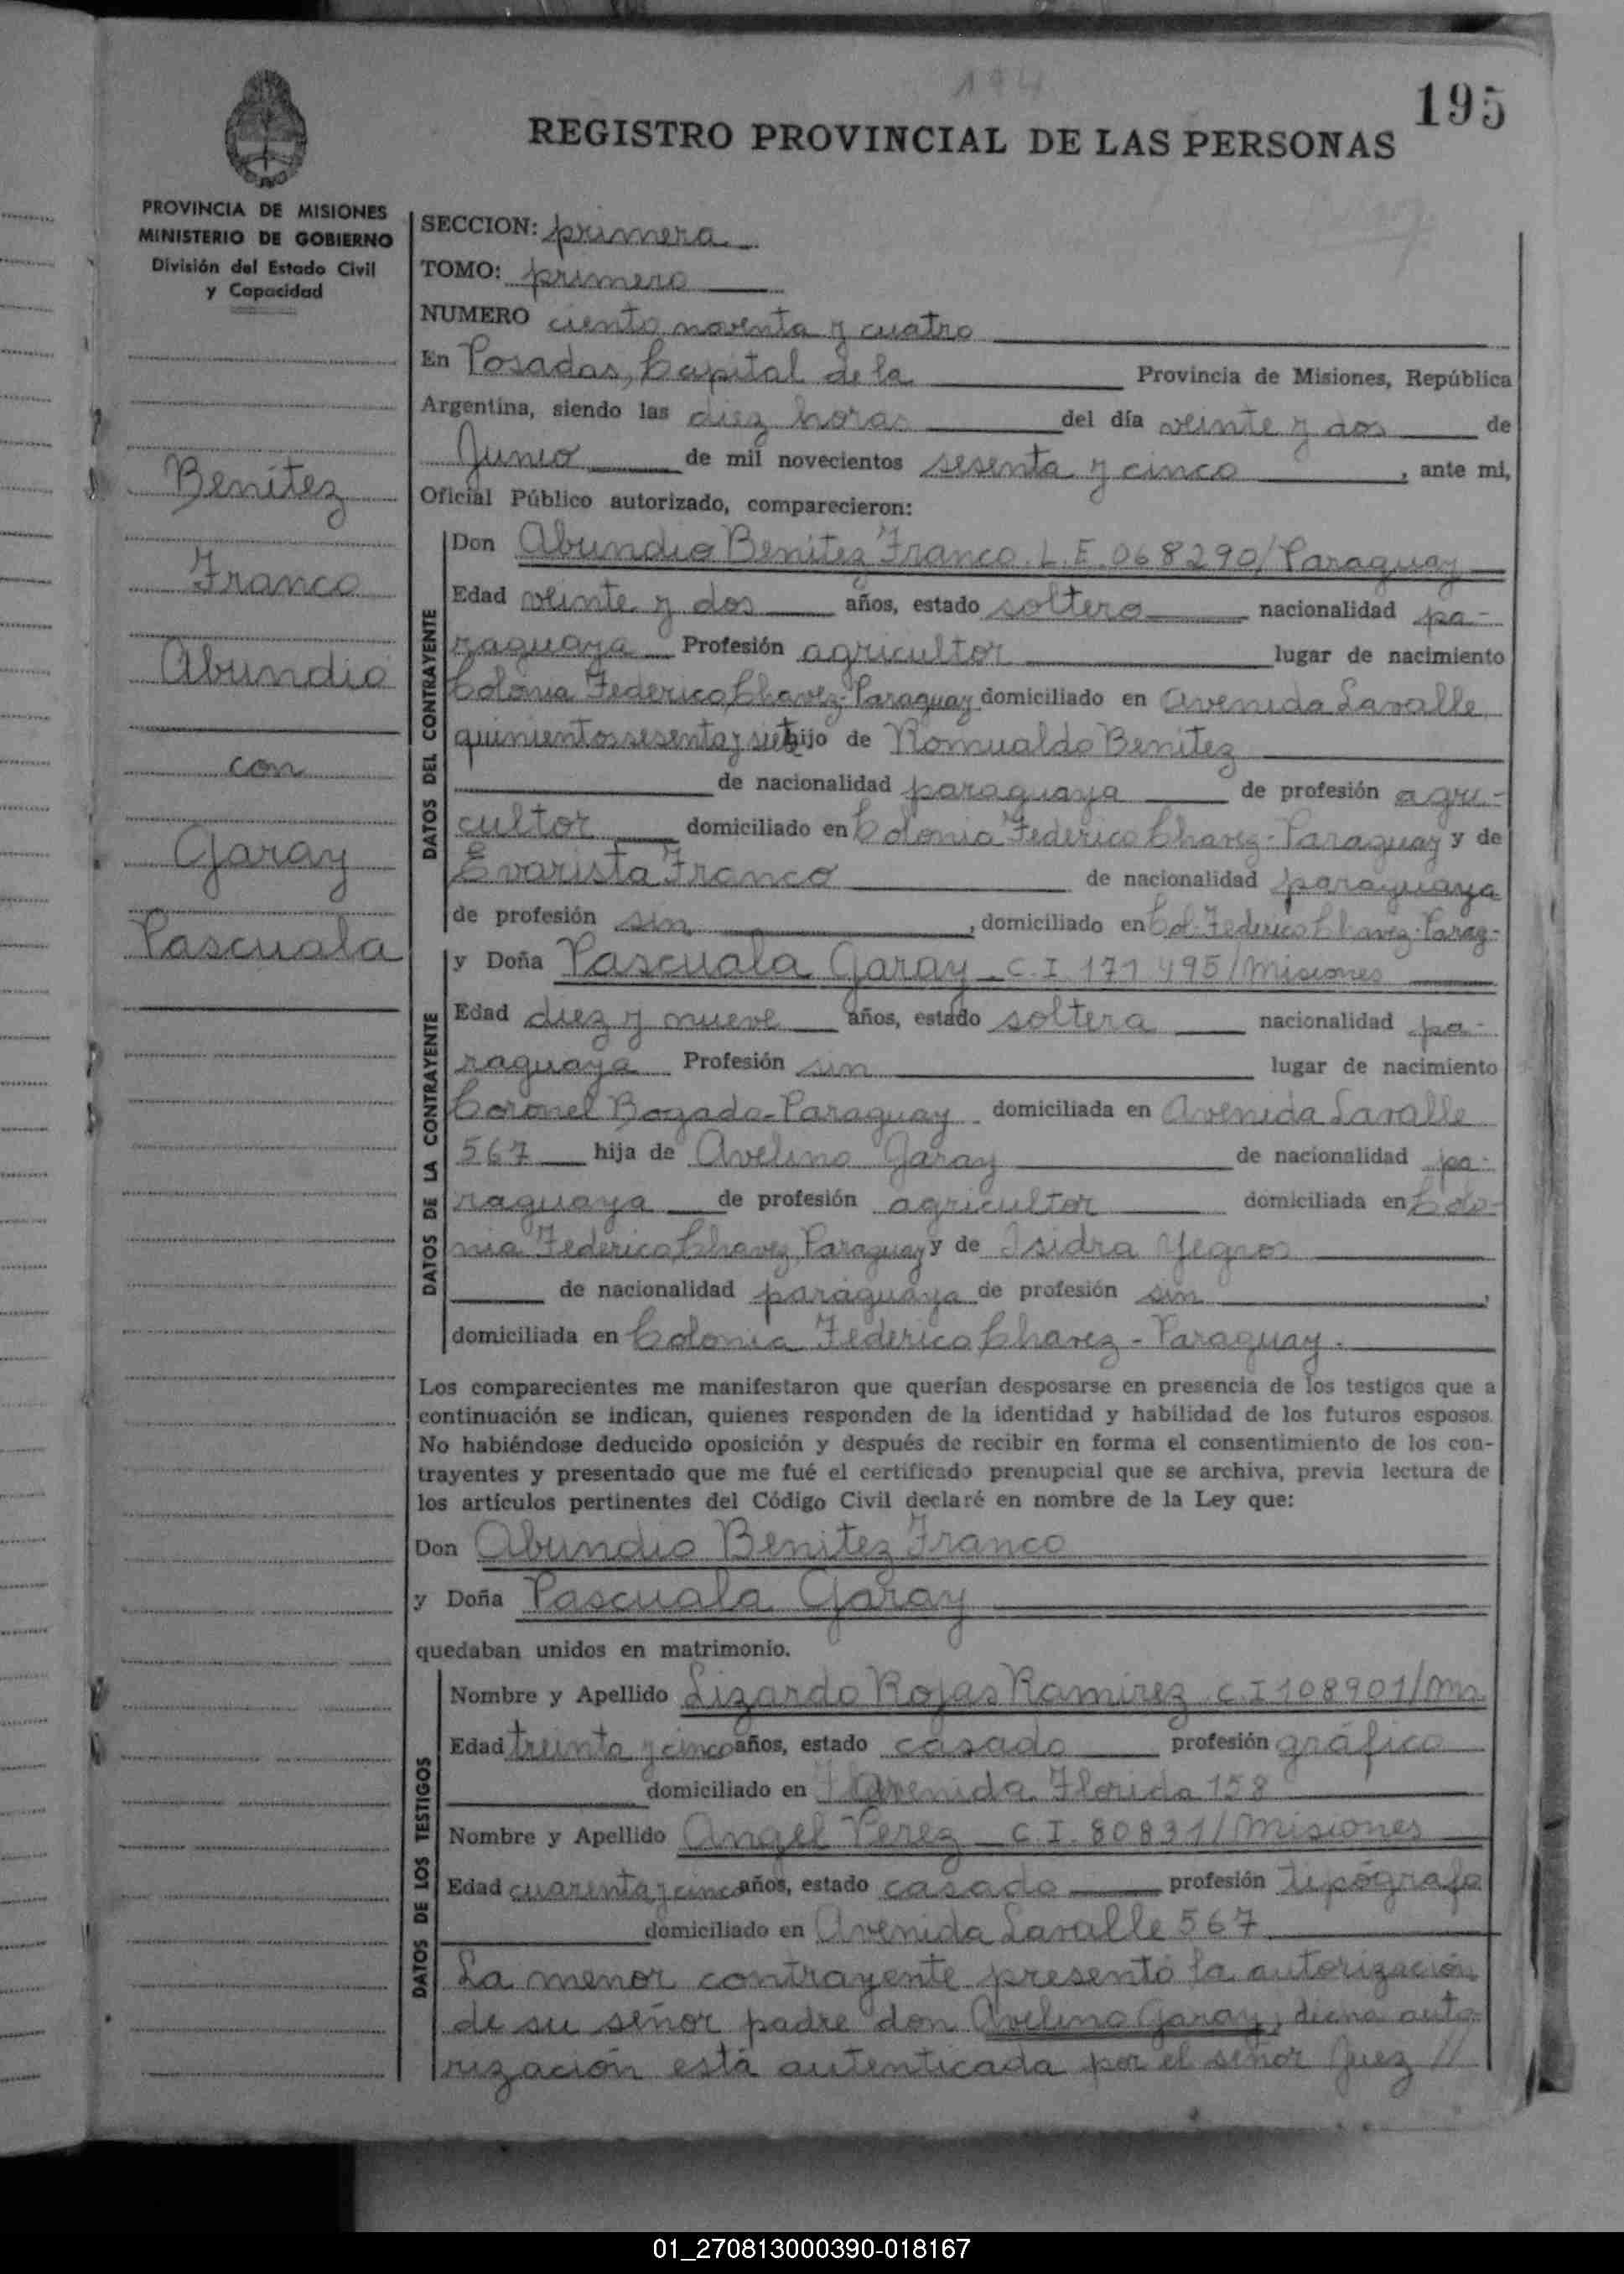 194
195
REGISTRO PROVINCIAL DE LAS PERSONAS
PROVINCIA DE MISIONES
MINISTERIO DE GOBIERNO
División del Estado Civil
y Capacidad
Benítez
Franco
Abundio
con
Garay
Pascuala
SECCION: primera
TOMO: primero
NUMERO ciento noventa y cuatro
En Posadas, Capital de la Provincia de Misiones, República
Argentina, siendo las diez horas del día veinte y dos de
Junio de mil novecientos sesenta y cinco, ante mi,
Oficial Público autorizado, comparecieron:
DATOS DEL CONTRAYENTE
Don Abundio Benítez Franco. L.E. 068290/Paraguay
Edad veinte y dos años, estado soltero nacionalidad pa-
raguaya Profesión agricultor lugar de nacimiento
Colonia Federico Chavez-Paraguay domiciliado en Avenida Lavalle
quinientos sesenta y siete hijo de Romualdo Benítez
de nacionalidad paraguaya de profesión agri-
cultor domiciliado en Colonia Federico Chavez-Paraguay y de
Evarista Franco de nacionalidad paraguaya
de profesión sin, domiciliado en Col. Federico Chavez-Parag-
DATOS DE LA CONTRAYENTE
y Doña Pascuala Garay - C.I. 171.495/Misiones
Edad diez y nueve años, estado soltera nacionalidad pa-
raguaya Profesión sin lugar de nacimiento
Coronel Bogado-Paraguay domiciliada en Avenida Lavalle
567 hija de Avelino Garay de nacionalidad pa-
raguaya de profesión agricultor domiciliada en Colo-
nia Federico Chavez, Paraguay y de Isidra Yegros
de nacionalidad paraguaya de profesión sin,
domiciliada en Colonia Federico Chavez - Paraguay.
Los comparecientes me manifestaron que querían desposarse en presencia de los testigos que a
continuación se indican, quienes responden de la identidad y habilidad de los futuros esposos.
No habiéndose deducido oposición y después de recibir en forma el consentimiento de los con-
trayentes y presentado que me fué el certificado prenupcial que se archiva, previa lectura de
los artículos pertinentes del Código Civil declaré en nombre de la Ley que:
Don Abundio Benítez Franco
y Doña Pascuala Garay
quedaban unidos en matrimonio.
DATOS DE LOS TESTIGOS
Nombre y Apellido Lizardo Rojas Ramirez C.I 108901/Mns
Edad treinta y cinco años, estado casado profesión gráfico
domiciliado en Avenida Florida 158
Nombre y Apellido Angel Perez - C.I. 80831/Misiones
Edad cuarenta y cinco años, estado casado profesión tipógrafo
domiciliado en Avenida Lavalle 567
La menor contrayente presentó la autorización
de su señor padre don Avelino Garay, dicha auto
rización está autenticada por el señor Juez //
01_270813000390-018167